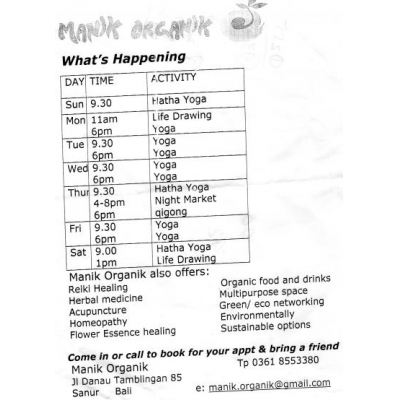 MANIK ORGANIK
What's Happening
DAY TIME ACTIVITY
Sun 9.30 Hatha Yoga
Mon 11am Life Drawing
6pm Yoga
Tue 9.30 Yoga
6pm Yoga
Wed 9.30 Yoga
6pm Yoga
Thur 9.30 Hatha Yoga
4-8pm Night Market
6pm qigong
Fri 9.30 Yoga
6pm Yoga
Sat 9.00 Hatha Yoga
1pm Life Drawing
Manik Organik also offers:
Reiki Healing
Herbal medicine
Acupuncture
Homeopathy
Flower Essence healing
Organic food and drinks
Multipurpose space
Green/ eco networking
Environmentally
Sustainable options
Come in or call to book for your appt & bring a friend
Manik Organik
Jl Danau Tamblingan 85
Sanur Bali
Tp 0361 8553380
e: manik.organik@gmail.com